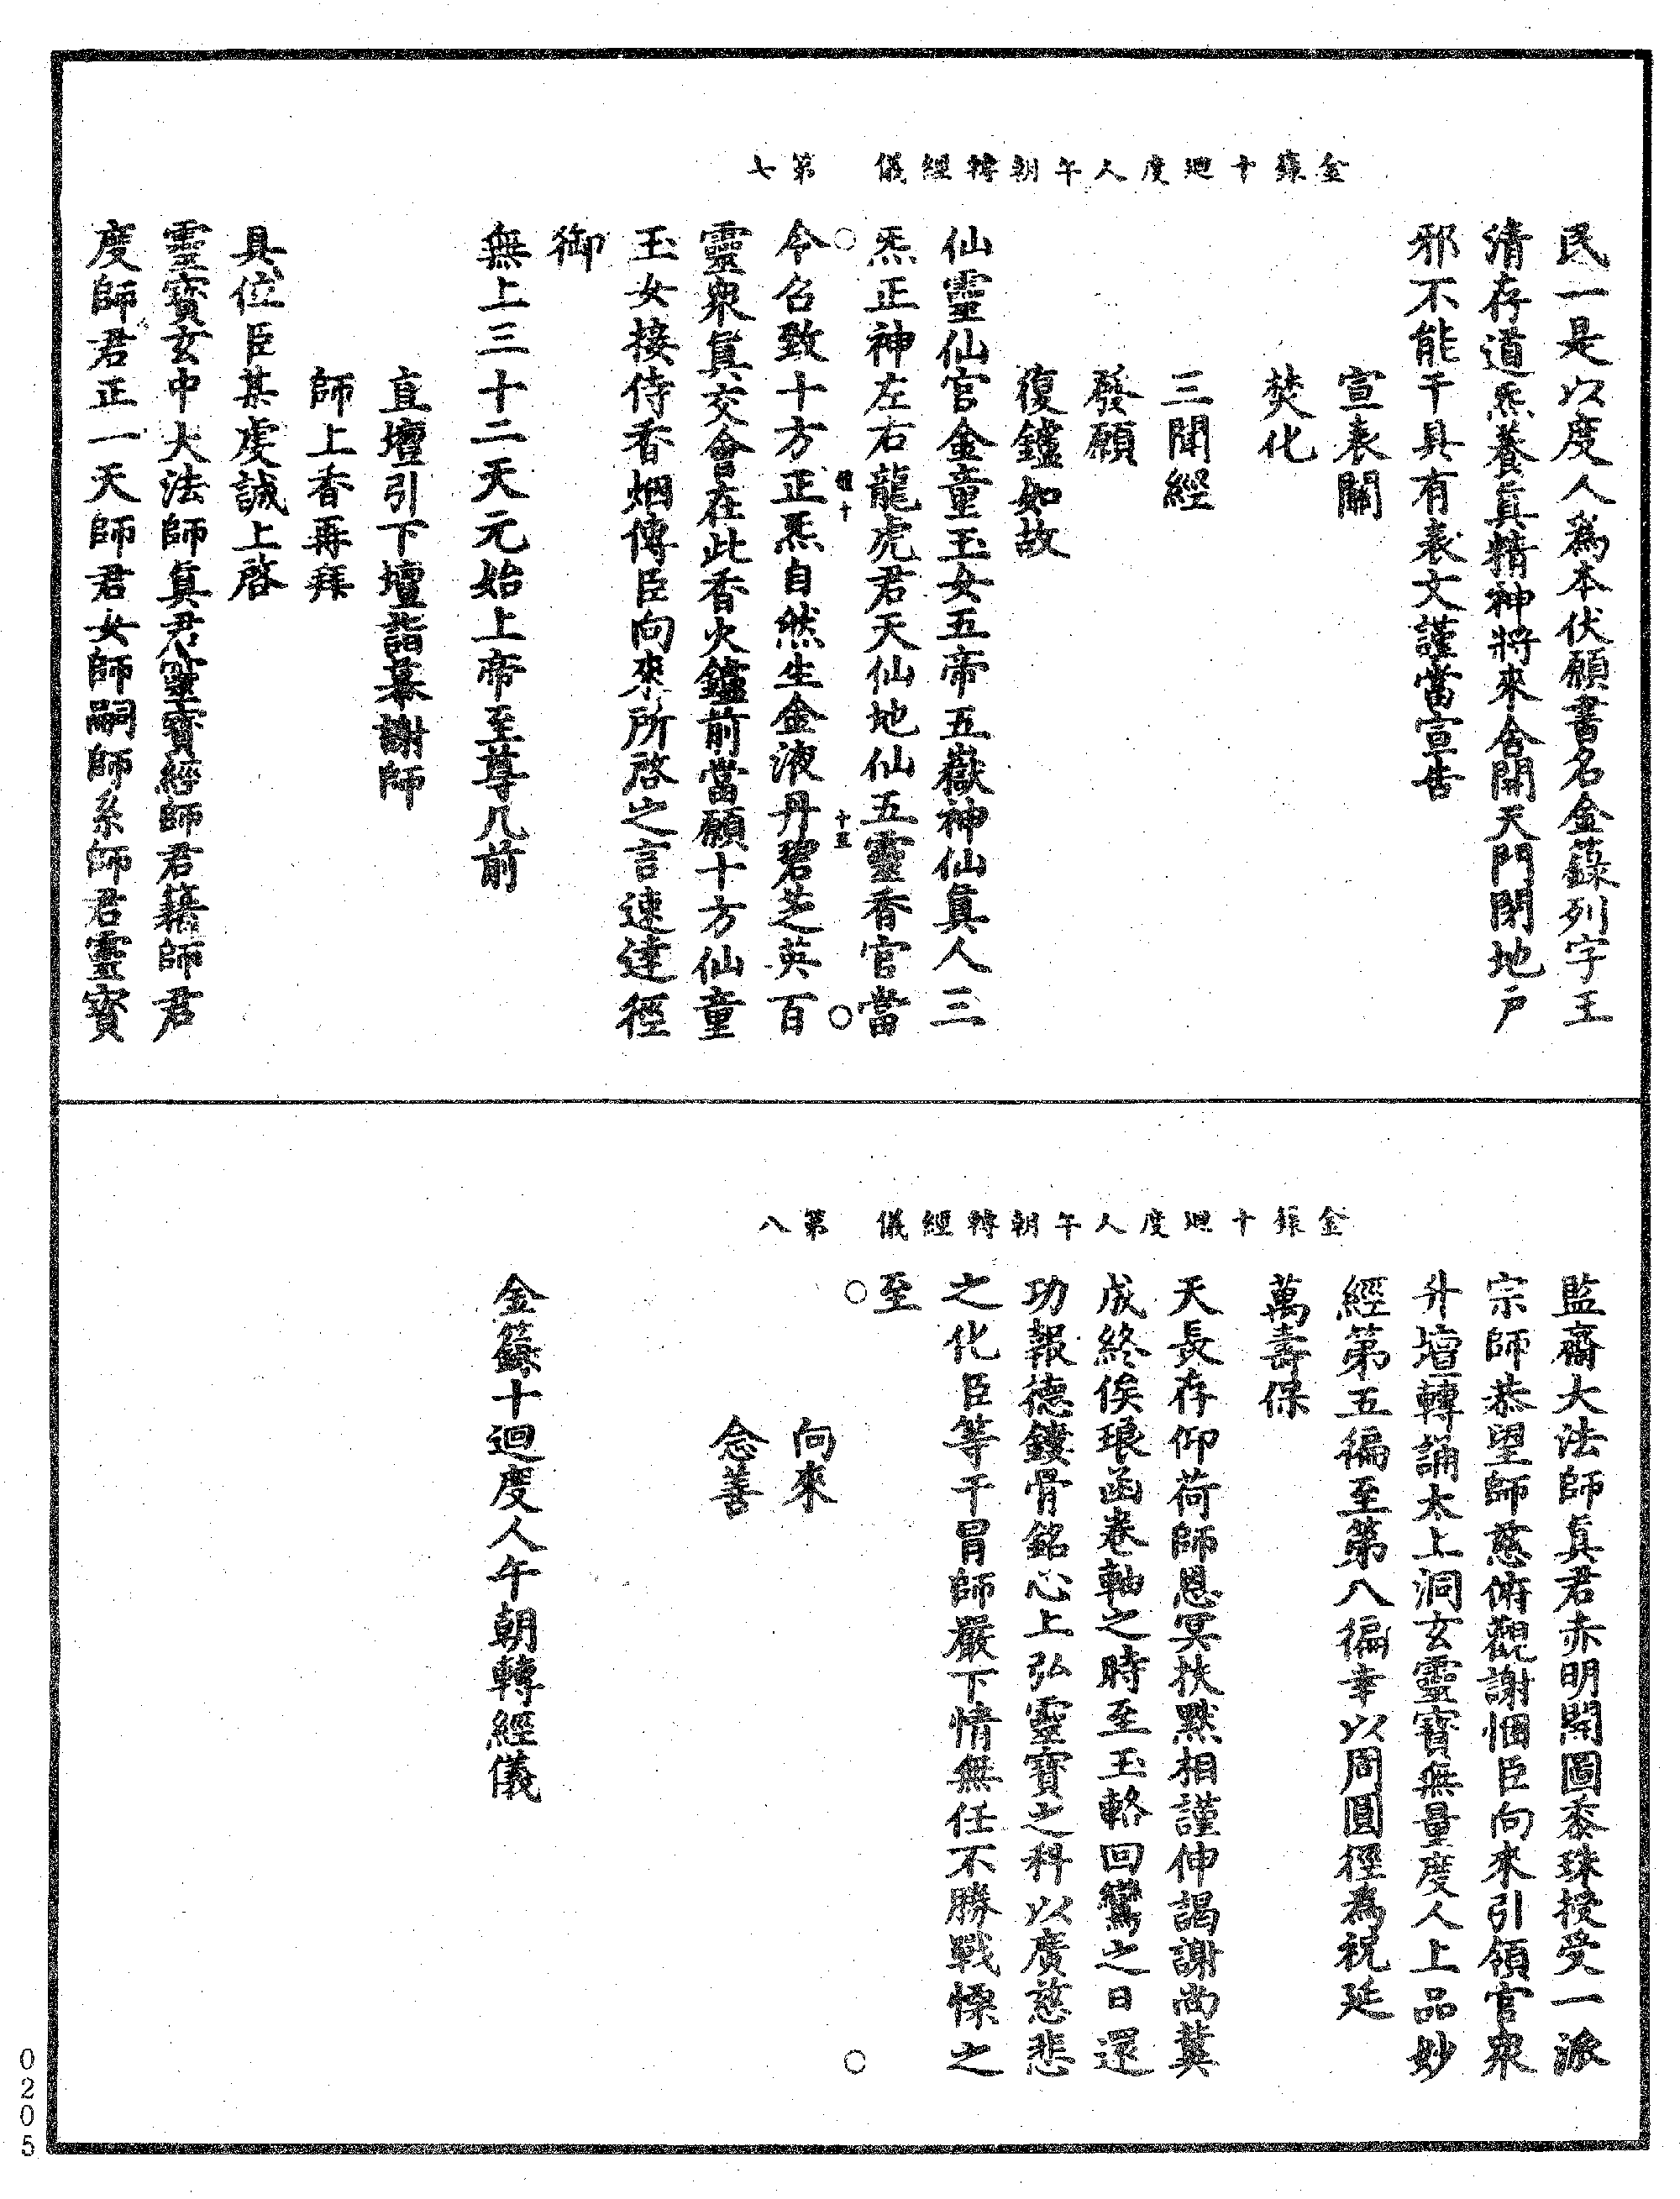 金籙十迴度人午朝轉經儀　第七
民一是以度人爲本伏願書名金籙列字王
清存道炁養眞精神將來合開天門閉地户
邪不能干具有表文謹當宣告
宣表關
焚化
三聞經
發願
復鑪如故
仙靈仙官金童玉女五帝五嶽神仙眞人三
炁正神左右龍虎君天仙地仙五靈香官當
今召致十方正炁自然生金液丹碧芝英百
靈衆眞交會在此香火鑪前當願十方仙童
玉女接侍香烟傳臣向來所啓之言速達徑
御
無上三十二天元始上帝至尊几前
直壇引下壇詣幕謝師
師上香再拜
具位臣某虔誠上啓
靈寶玄中大法師眞君靈寶經師君籍師君
度師君正一天師君女師嗣師系師君靈寶
金籙十迴度人午朝轉經儀　第八
監齋大法師眞君赤明開圖黍珠授受一派
宗師恭望師慈俯觀謝悃臣向來引領官衆
升壇轉誦太上洞玄靈寶無量度人上品妙
經第五徧至第八徧幸以周圓徑爲祝延
萬壽保
天長存仰荷師恩冥扶黙相謹伸謁謝尚冀
成終俟琅函卷軸之時至玉輅回鸞之日還
功報德鏤骨銘心上弘靈寶之科以廣慈悲
之化臣等干冒師嚴下情無任不勝戰慄之
至
向來
念善
金籙十迴度人午朝轉經儀
0205